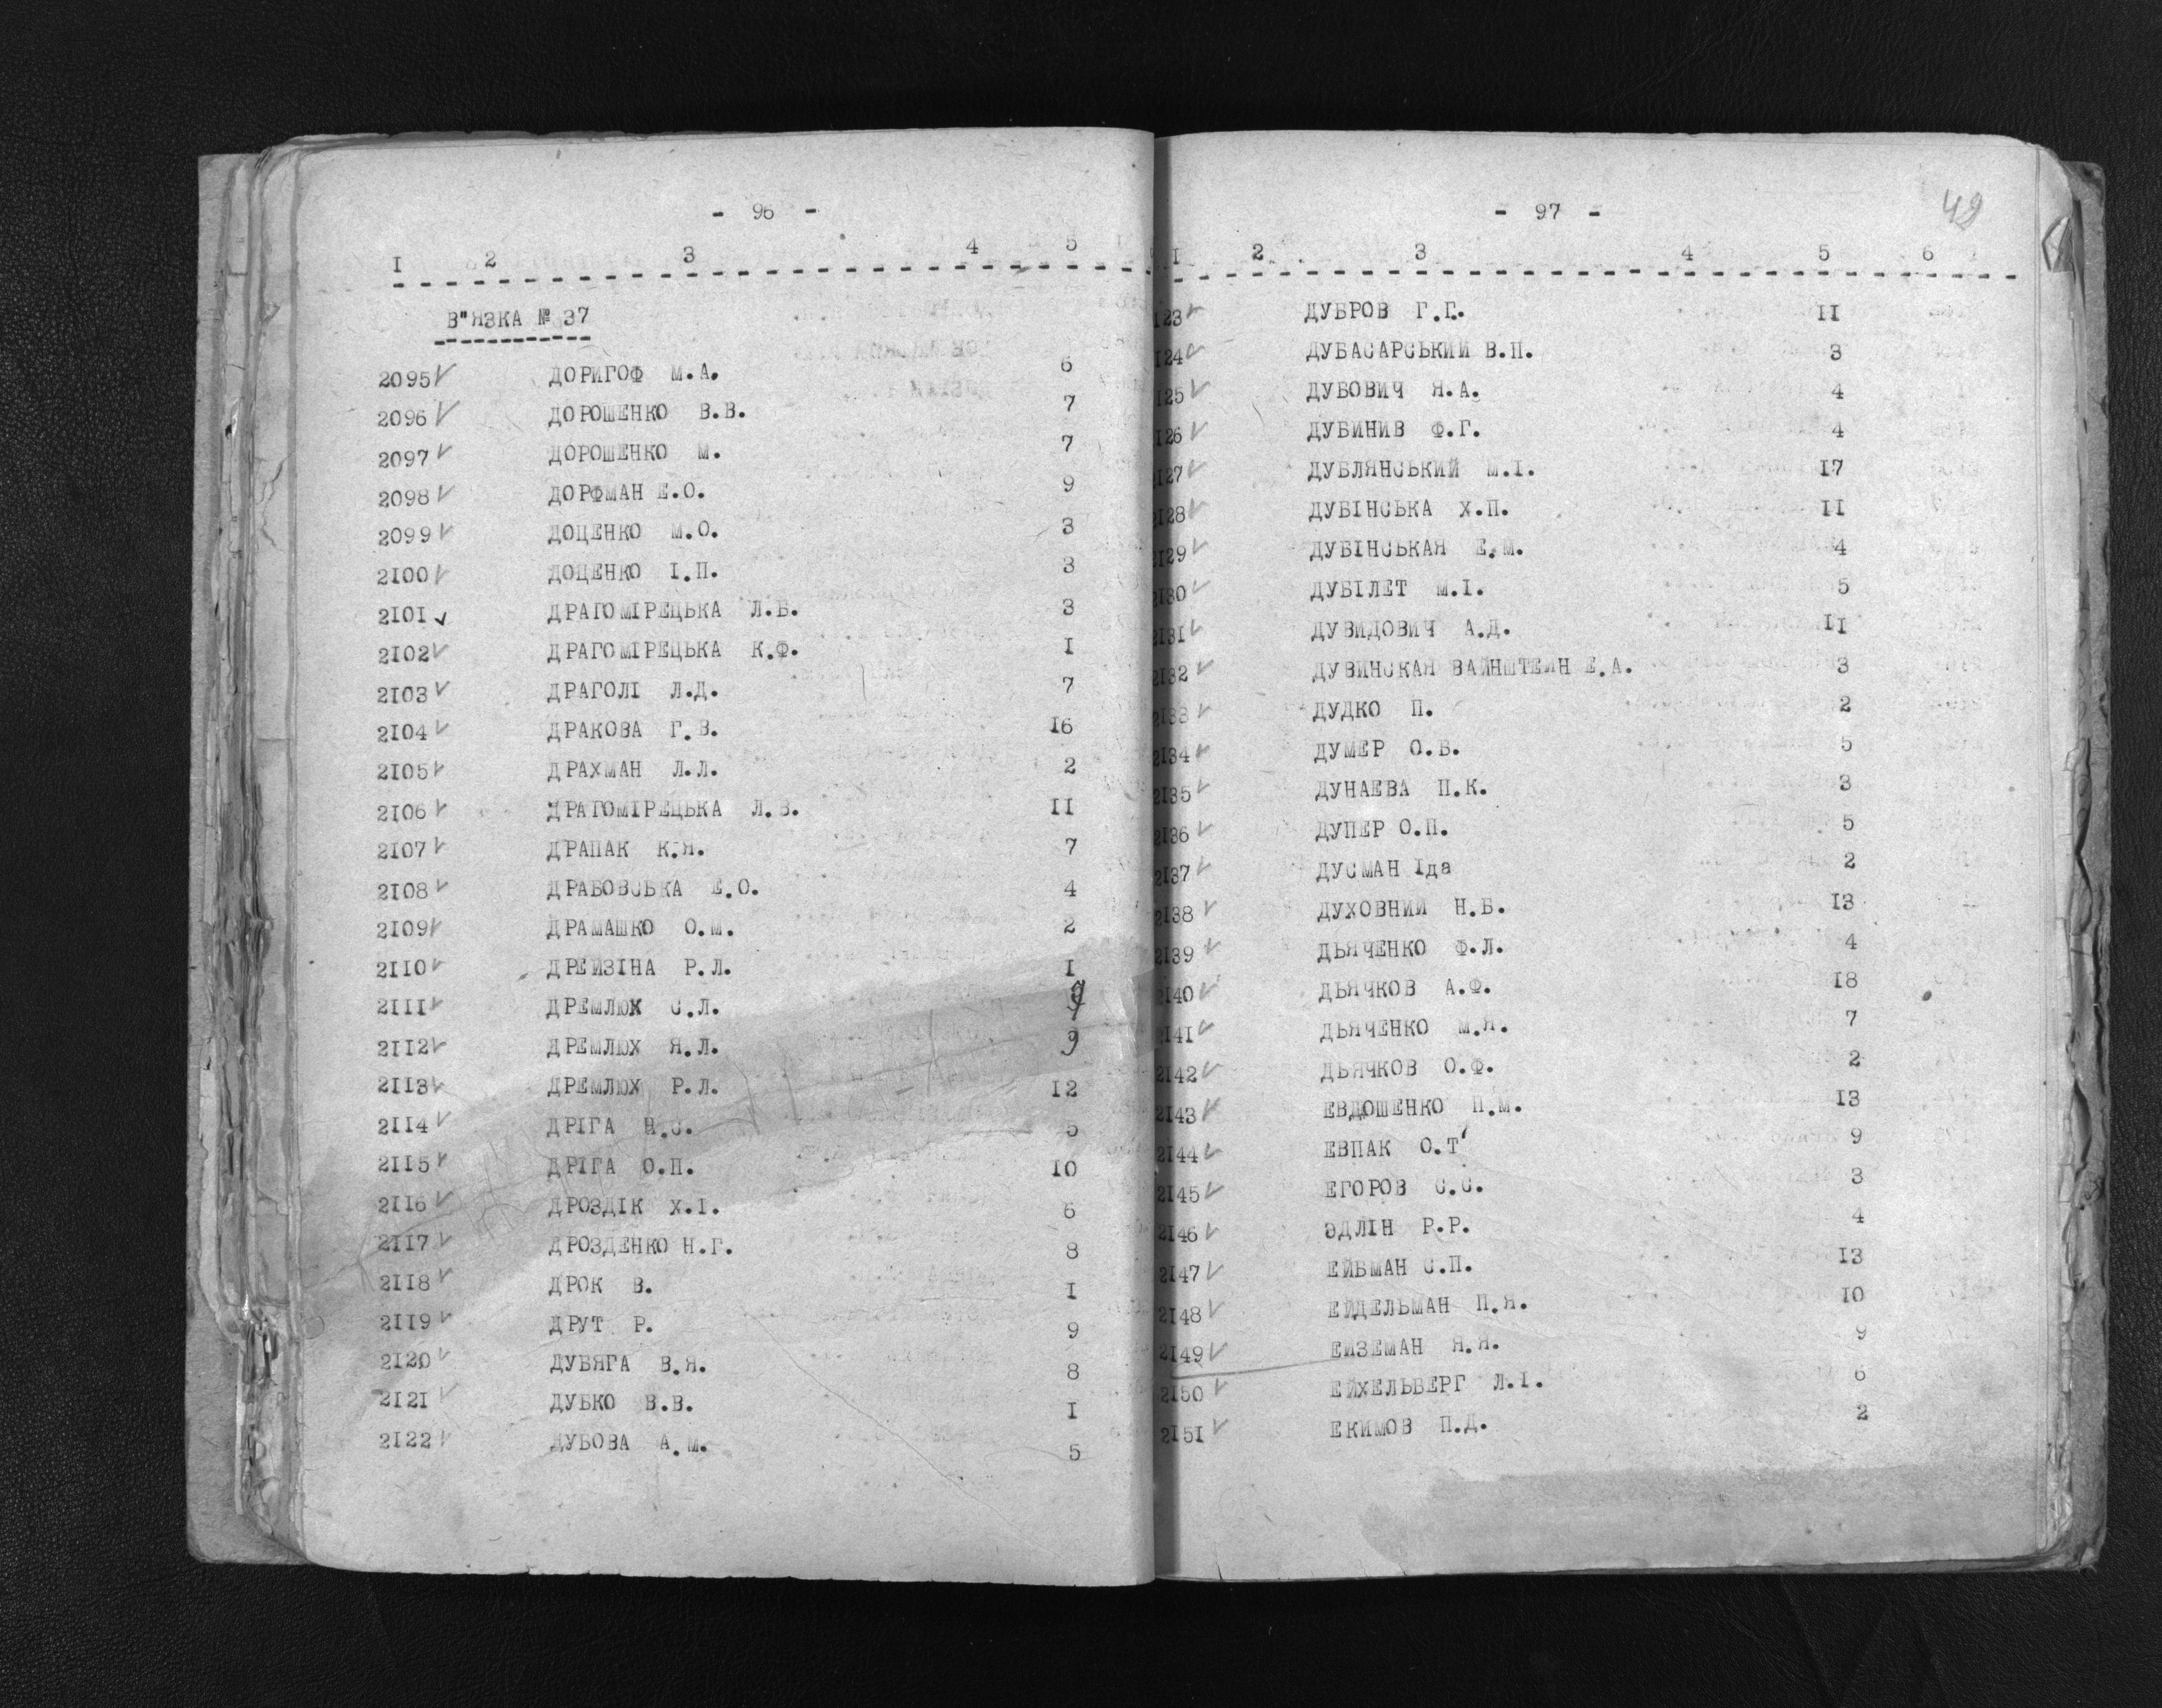 - 96 -
I 2 3 4 5
В"ЯЗКА № 37
2095 ДОРИГОФ М.А. 6
2096 ДОРОШЕНКО В.В. 7
2097 ДОРОШЕНКО М. 7
2098 ДОРФМАН Е.О. 9
2099 ДОЦЕНКО М.О. 3
2100 ДОЦЕНКО І.П. 3
2101 ДРАГОМІРЕЦЬКА Л.Б. 3
2102 ДРАГОМІРЕЦЬКА К.Ф. I
2103 ДРАГОЛІ Л.Д. 7
2104 ДРАКОВА Г.В. I6
2105 ДРАХМАН Л.Л. 2
2106 ДРАГОМІРЕЦЬКА Л.В. II
2107 ДРАПАК К.Я. 7
2108 ДРАБОВСЬКА Е.О. 4
2109 ДРАМАШКО О.М. 2
2110 ДРЕЙЗІНА Р.Л. I
2111 ДРЕМЛЮХ С.Л. 9
2112 ДРЕМЛЮХ Я.Л. 9
2113 ДРЕМЛЮХ Р.Л. 12
2114 ДРІГА Н.С. 5
2115 ДРІГА О.П. 10
2116 ДРОЗДІК Х.І. 6
2117 ДРОЗДЕНКО Н.Г. 8
2118 ДРОК В. I
2119 ДРУТ Р. 9
2120 ДУБЯГА В.Я. 8
2121 ДУБКО В.В. I
2122 ДУБОВА А.М. 5
- 97 -
49
I 2 3 4 5 6
123 ДУБРОВ Г.Г. II
124 ДУБАСАРСЬКИЙ В.П. 3
125 ДУБОВИЧ Я.А. 4
126 ДУБИНИВ Ф.Г. 4
2127 ДУБЛЯНСЬКИЙ М.І. I7
2128 ДУБІНСЬКА Х.П. II
2129 ДУБІНСЬКАЯ Е.М. 4
2130 ДУБІЛЕТ М.І. 5
2131 ДУВИДОВИЧ А.Д. II
2132 ДУВИНСКАЯ ВАЙНШТЕИН Е.А. 3
2133 ДУДКО П. 2
2134 ДУМЕР О.Б. 5
2135 ДУНАЕВА П.К. 3
2136 ДУПЕР О.П. 5
2137 ДУСМАН Іда 2
2138 ДУХОВНИЙ Н.Б. 13
2139 ДЬЯЧЕНКО Ф.Л. 4
2140 ДЬЯЧКОВ А.Ф. 18
2141 ДЬЯЧЕНКО М.Я. 7
2142 ДЬЯЧКОВ О.Ф. 2
2143 ЕВДОШЕНКО П.М. 13
2144 ЕВПАК О.Т 9
2145 ЕГОРОВ С.С. 3
2146 ЭДЛІН Р.Р. 4
2147 ЕЙВМАН С.П. 13
2148 ЕЙДЕЛЬМАН П.Я. 10
2149 ЕИЗЕМАН Я.Я. 9
2150 ЕЙХЕЛЬБЕРГ Л.І. 6
2151 ЕКИМОВ П.Д. 2